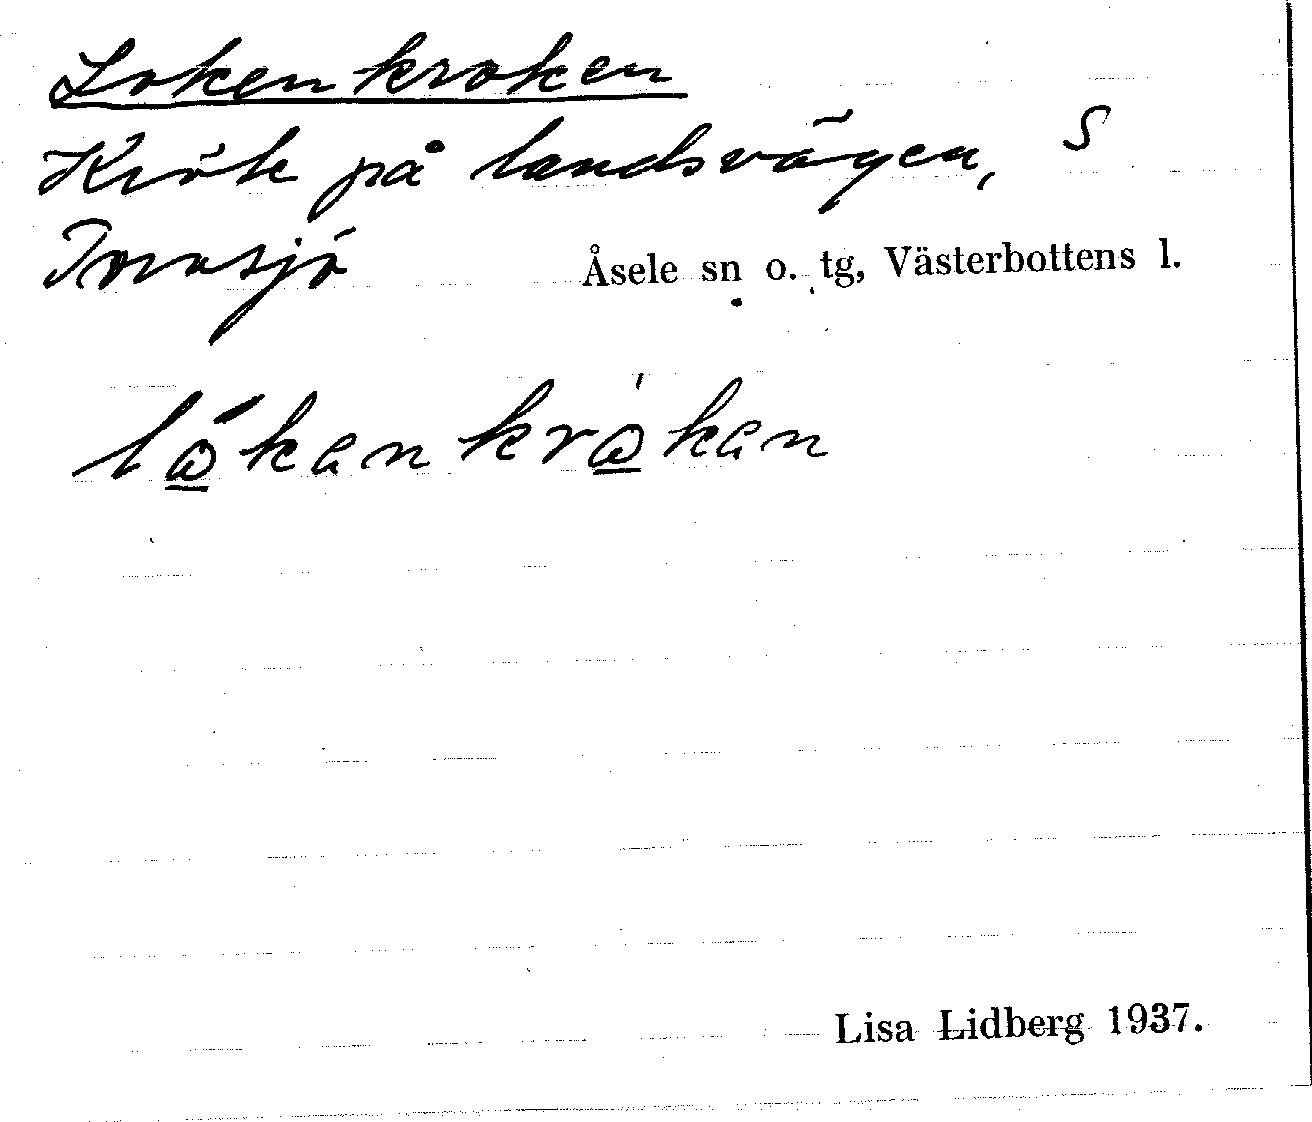 Lokenkroken
Krök på landsvägen, S
Torvsjö Åsele sn o. tg, Västerbottens l.
lo̲kenkro̲ken
Lisa Lidberg 1937.